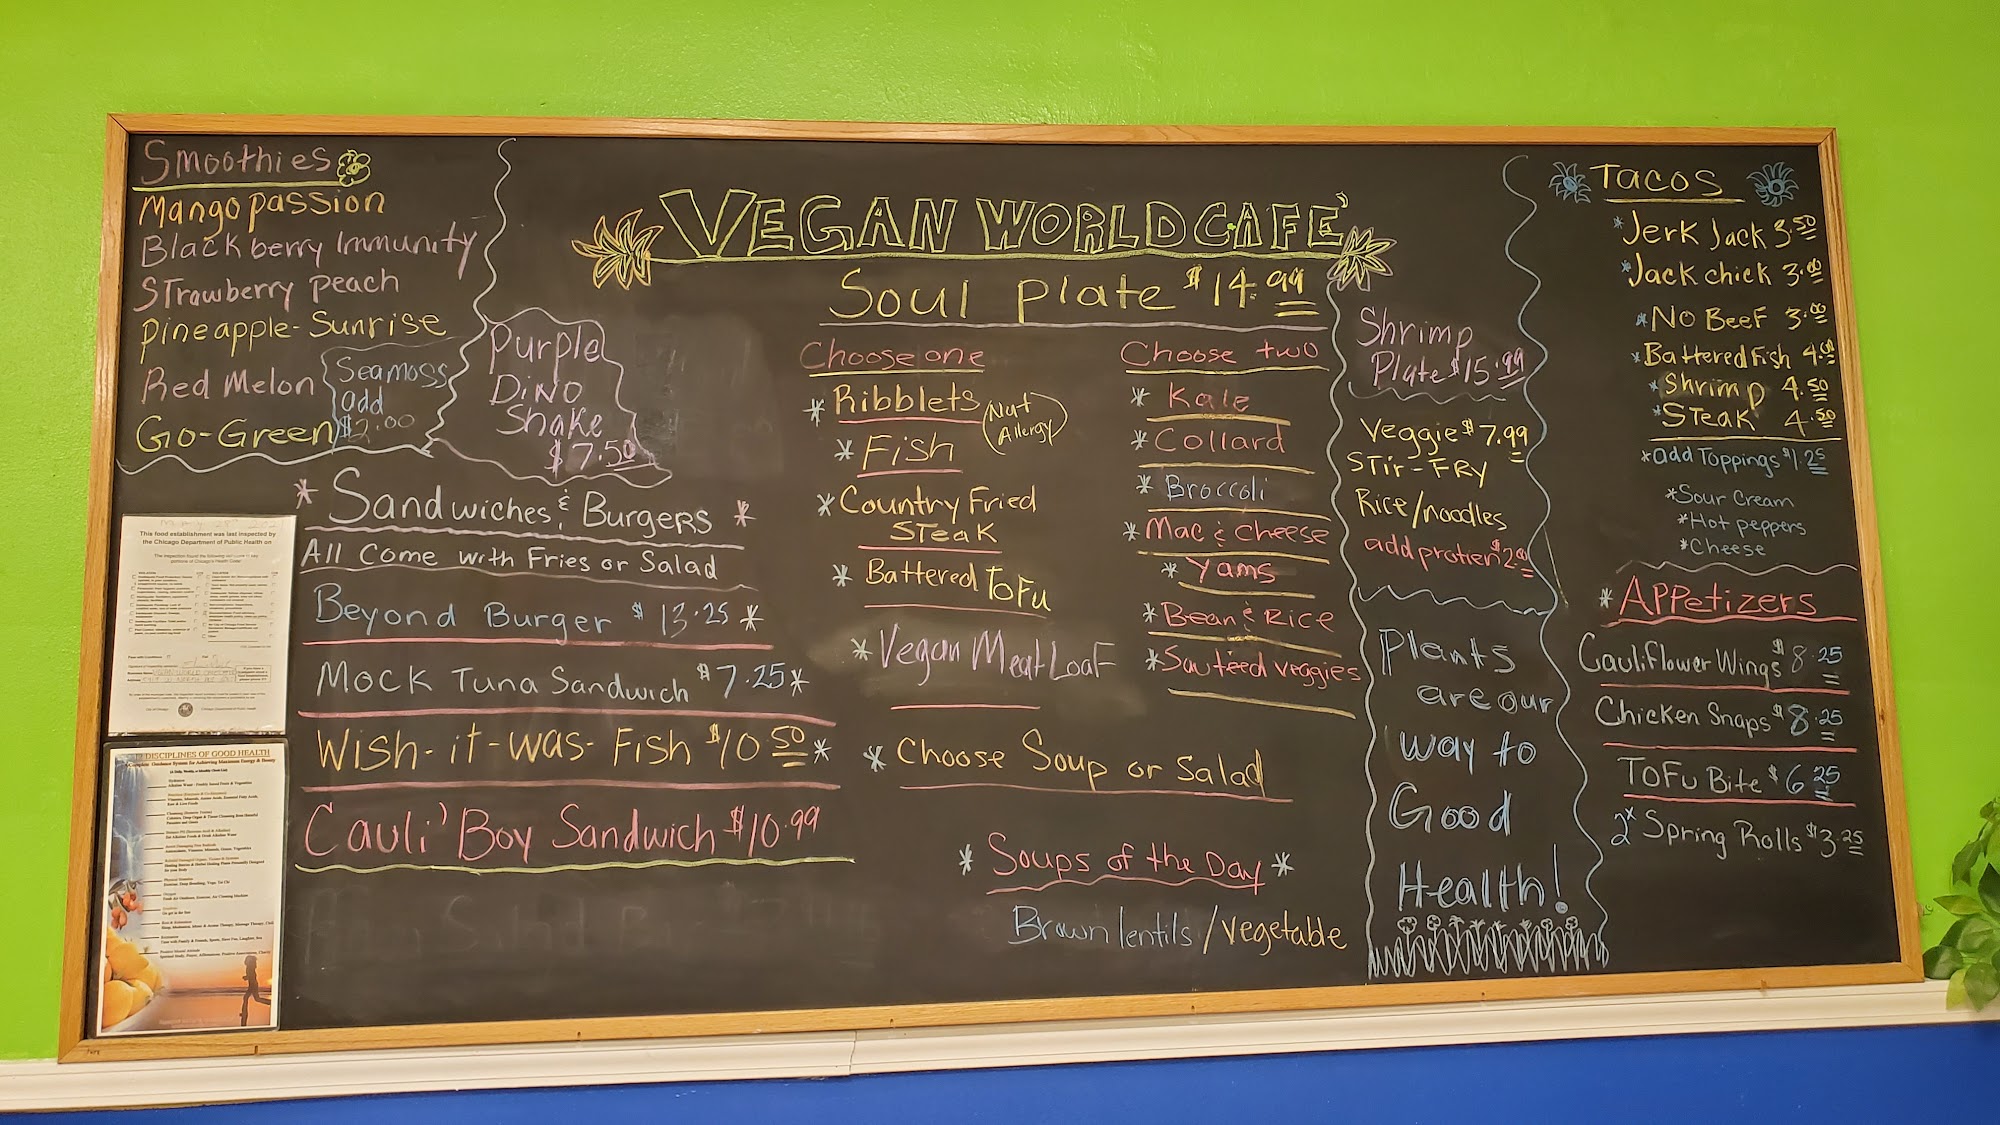 Smoothies
Mango passion
Blackberry Immunity
STrawberry peach
pineapple-Sunrise
Red Melon
Go-Green
Seamoss
add
$2.00
Purple
DiNO
Shake
$7.50
VEGAN WORLD CAFE'
Soul plate $14.99
Choose one
* Ribblets (Nut Allergy)
* Fish
* Country Fried
STeak
* Battered ToFu
* Vegan Meat Loaf
Choose two
* Kale
* Collard
* Broccoli
* Mac & cheese
* Yams
* Bean & Rice
* Sauteed veggies
* Choose Soup or Salad
* Soups of the Day *
Brown lentils / vegetable
* Sandwiches & Burgers *
All Come with Fries or Salad
Beyond Burger $13.25 *
Mock Tuna Sandwich $7.25 *
Wish-it-was-Fish $10.50 *
Cauli' Boy Sandwich $10.99
Shrimp
Plate $15.99
Veggie $7.99
STir-FRY
Rice/noodles
add protien $2.00
Plants
are our
way to
Good
Health!
Tacos
* Jerk Jack 3.50
* Jack chick 3.00
* No Beef 3.00
* Battered Fish 4.00
* Shrimp 4.50
* STeak 4.50
* add Toppings $1.25
* Sour Cream
* Hot peppers
* Cheese
* Appetizers
Cauliflower Wings $8.25
Chicken Snaps $8.25
ToFu Bite $6.25
2x Spring Rolls $3.25
This food establishment was last inspected by
the Chicago Department of Public Health on
DISCIPLINES OF GOOD HEALTH